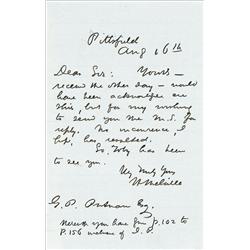 Pittsfield
Aug 16th
Dear Sir: Yours —
received the other day — would
have been acknowledged ere
this, but for my wishing
to send you the M.S. for
reply. No inconvenience, I
hope, has resulted.
Mr. Toby has been
to see you.
Very Truly Yours
H Melville
G. P. Putnam Esq.
Herewith you have from p. 102 to
p. 156 inclusive of I. P.